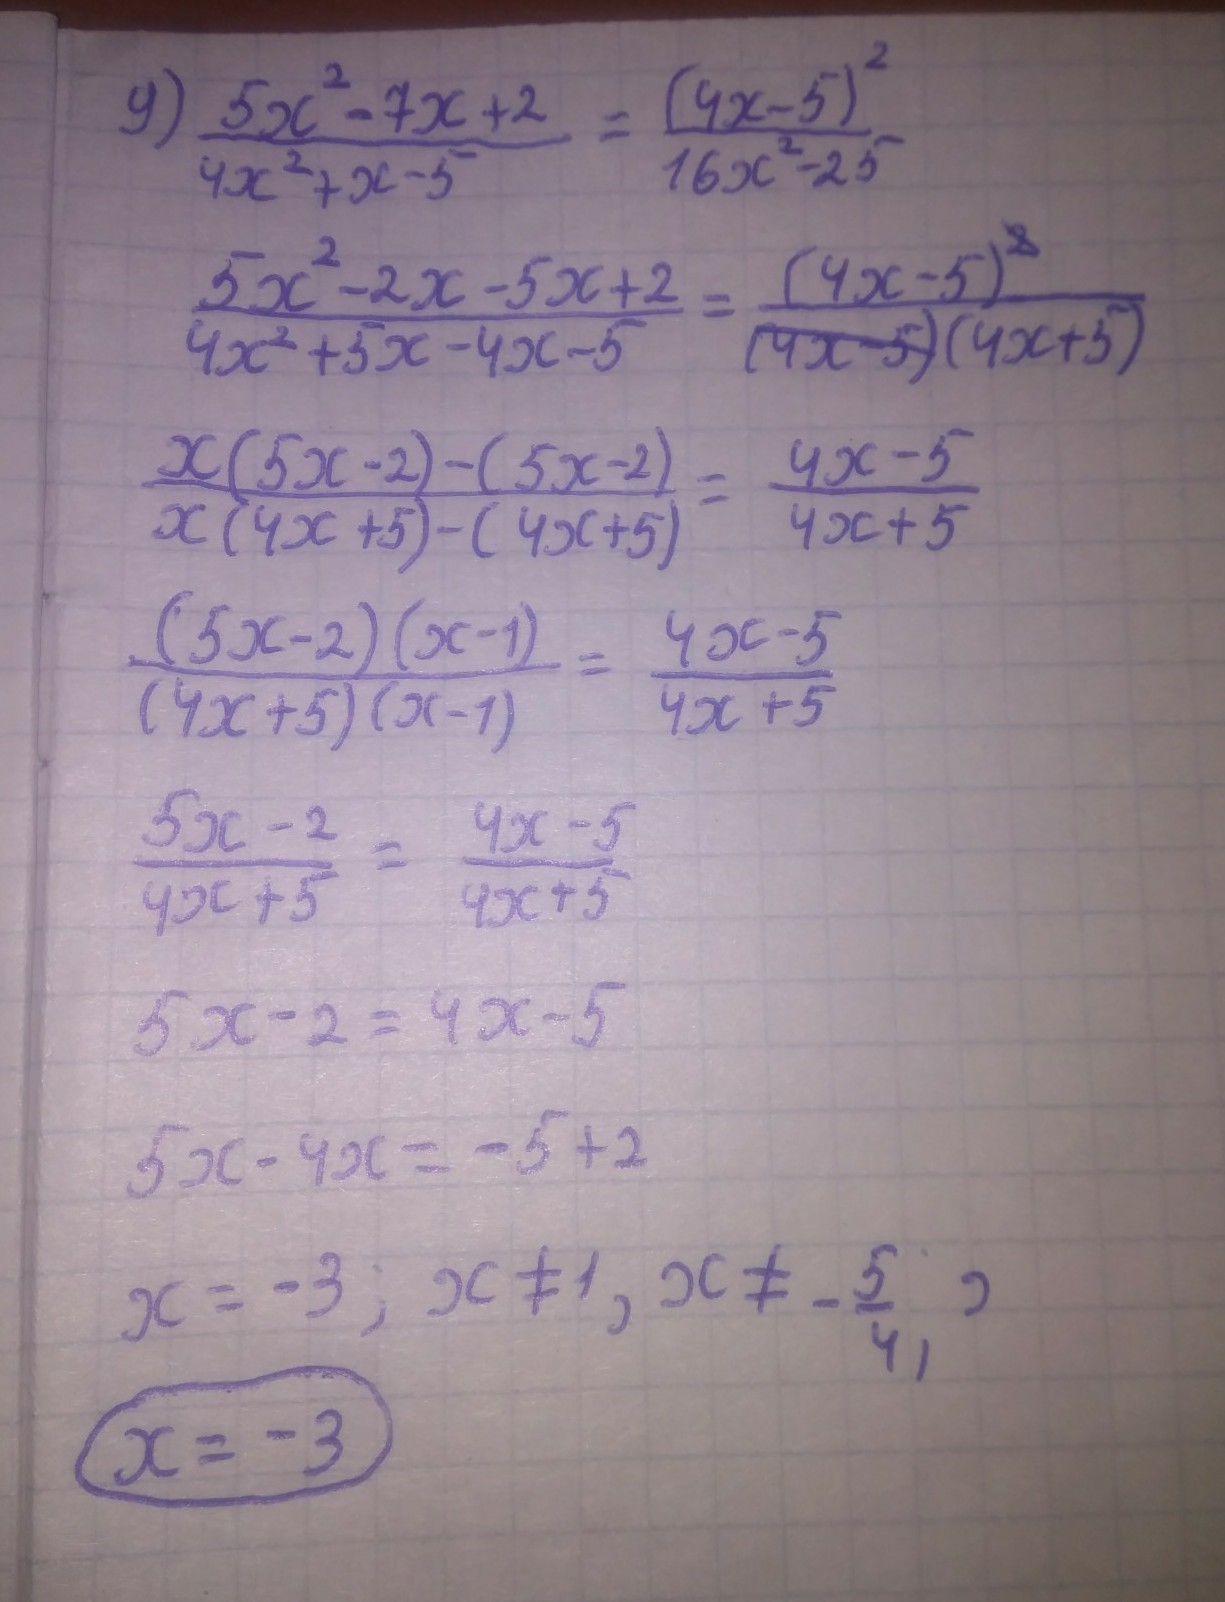 9) (5x² - 7x + 2)/(4x² + x - 5) = (4x - 5)²/(16x² - 25)
(5x² - 2x - 5x + 2)/(4x² + 5x - 4x - 5) = (4x - 5)²/((4x - 5)(4x + 5))
(x(5x - 2) - (5x - 2))/(x(4x + 5) - (4x + 5)) = (4x - 5)/(4x + 5)
((5x - 2)(x - 1))/((4x + 5)(x - 1)) = (4x - 5)/(4x + 5)
(5x - 2)/(4x + 5) = (4x - 5)/(4x + 5)
5x - 2 = 4x - 5
5x - 4x = -5 + 2
x = -3; x ≠ 1, x ≠ -5/4,
x = -3